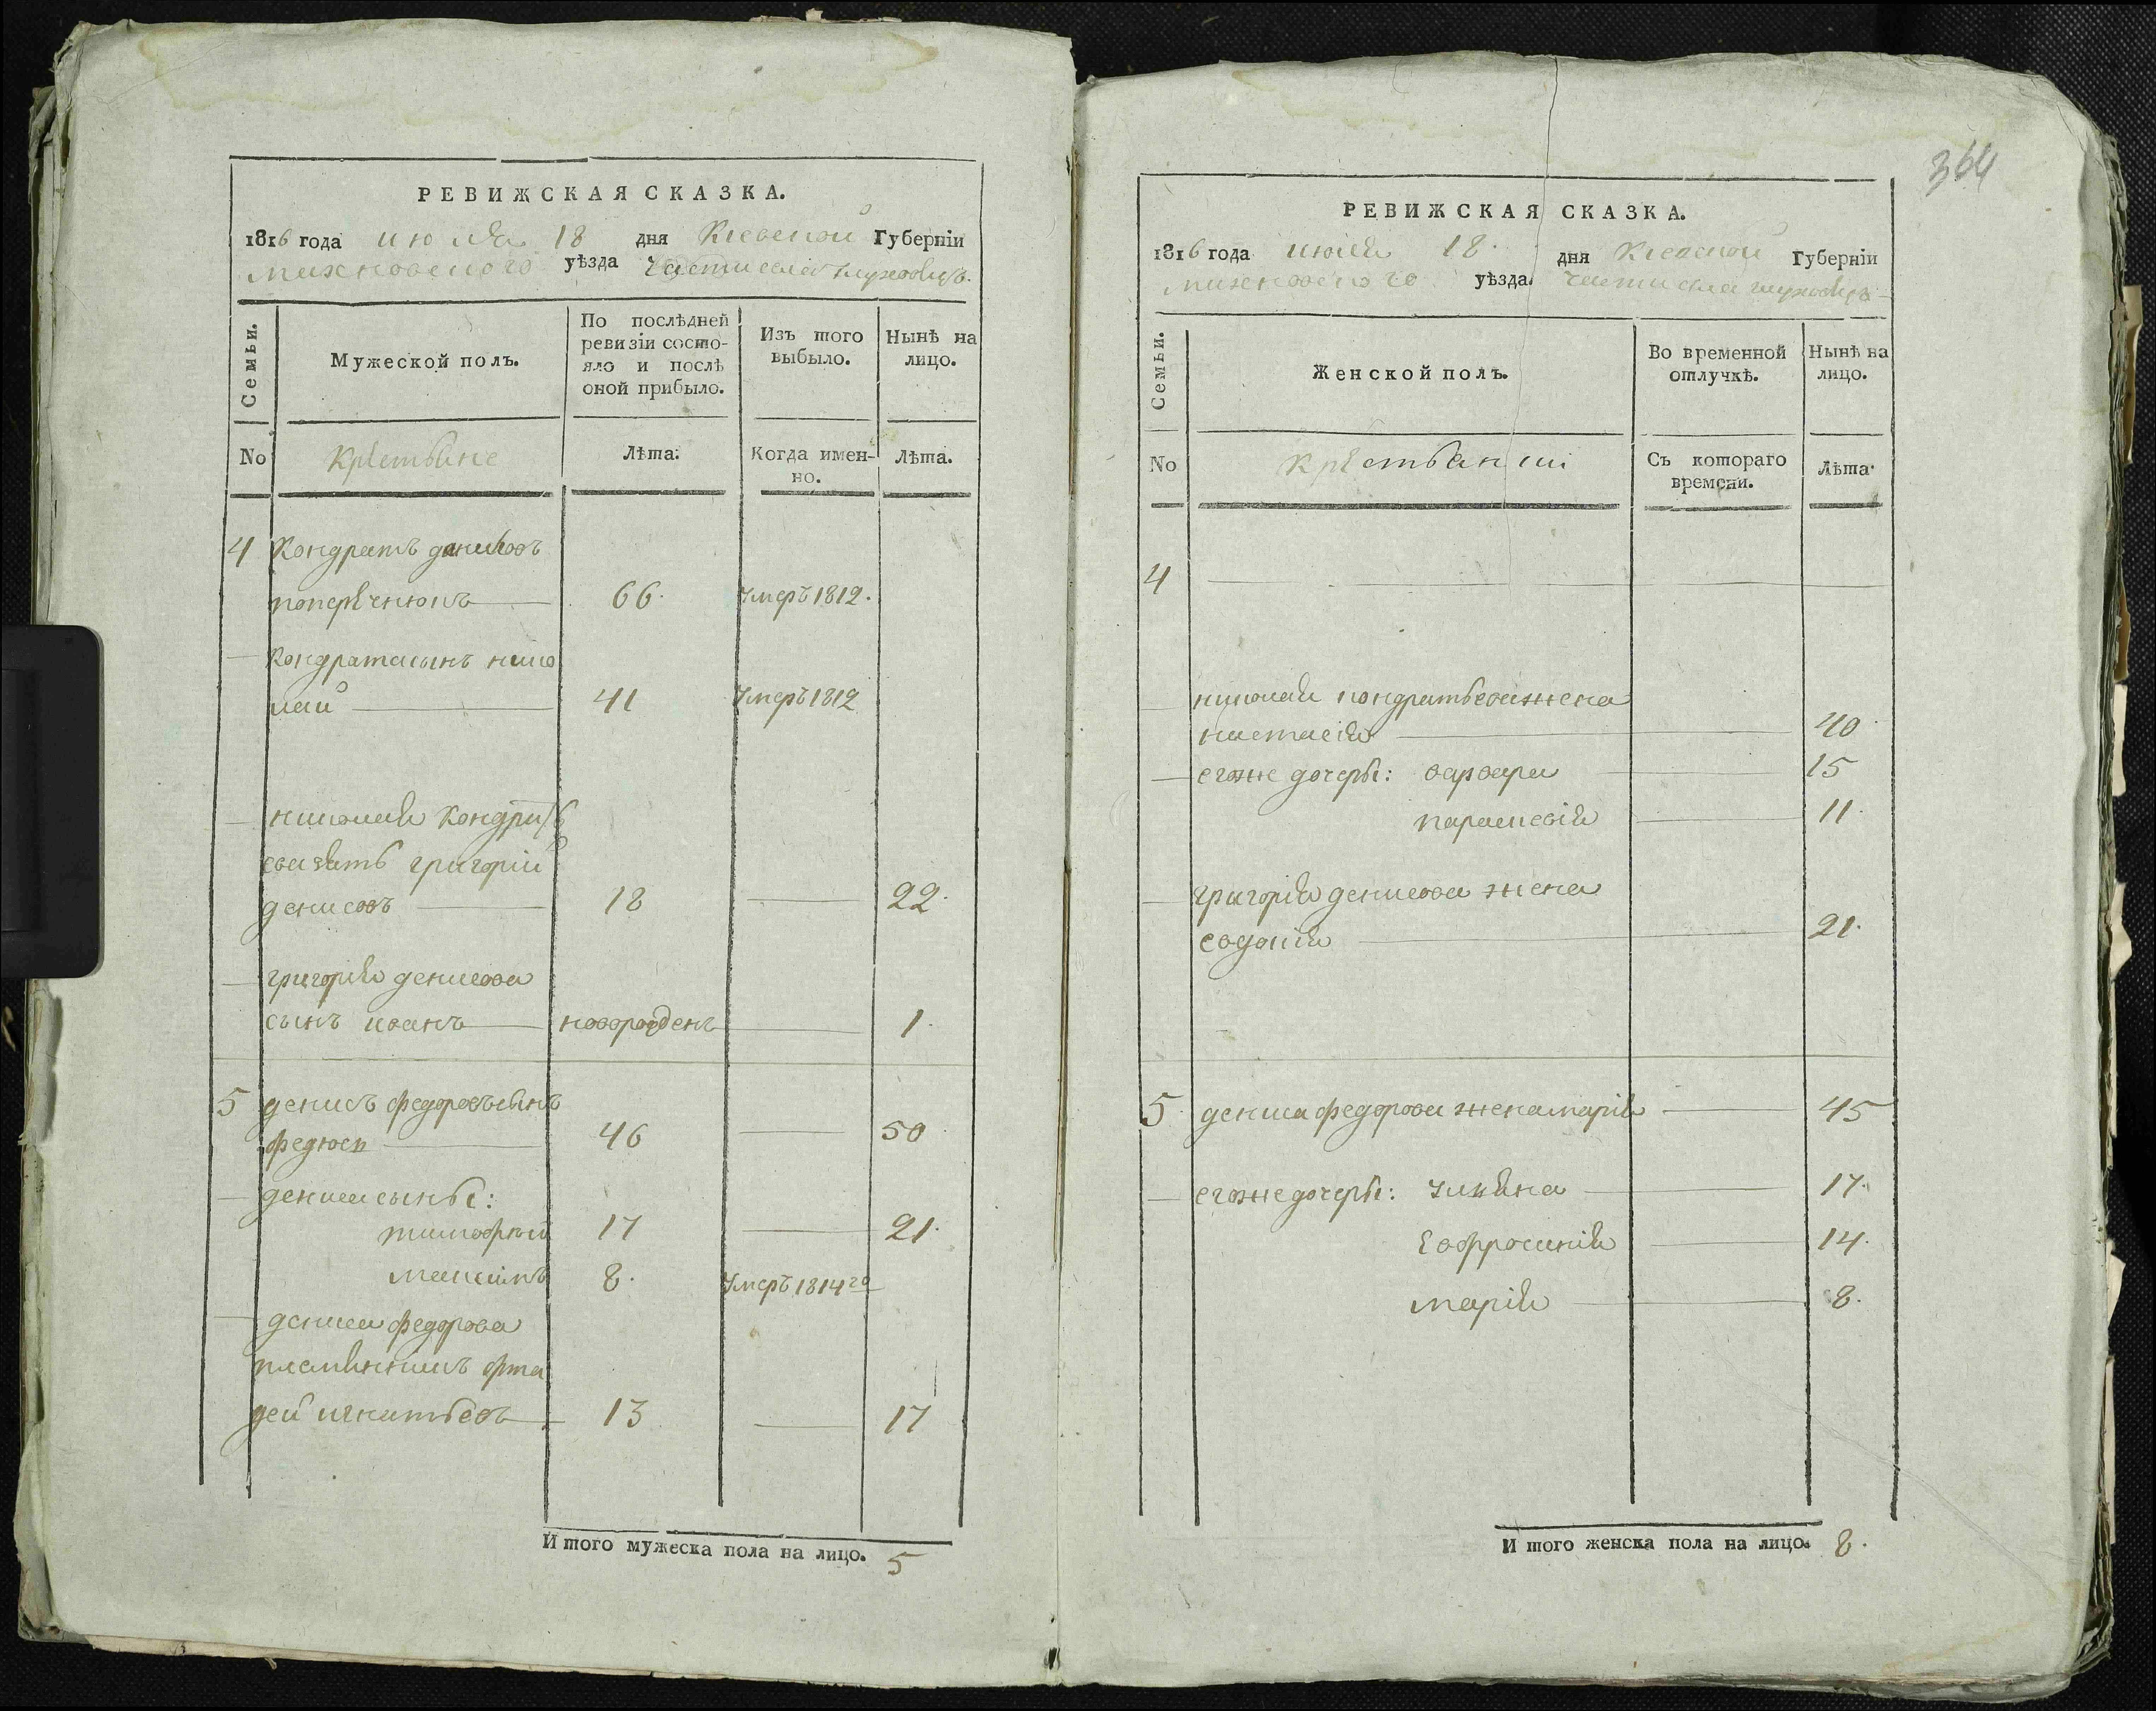 РЕВИЖСКАЯ СКАЗКА.
1816 года июля 18 дня Киевской Губерніи
Махновского уѣзда части села глуховецъ.
Семьи.
Мужеской полъ.
По послѣдней ревизіи состояло и послѣ оной прибыло.
Изъ того выбыло.
Нынѣ на лицо.
No Крестьяне Лѣта. Когда именно. Лѣта.
4 Кондратъ даниловъ
поперечнюкъ 66. Умеръ 1812.
Кондрата сынъ нико
лай 41 Умеръ 1812
николая Кондрать
ева зять григорій
денисовъ 18 22.
григорія денисова
сынъ иванъ новорожденъ 1.
5 денисъ федоровъ сынъ
федюкъ 46 50
дениса сыны:
тимофѣй 17 21.
максимъ 8. Умеръ 1814го
дениса федорова
племянникъ фта
дей игнатьевъ 13 17
И того мужеска пола на лицо. 5
364
РЕВИЖСКАЯ СКАЗКА.
1816 года июля 18. дня Киевской Губерніи
Махновского уѣзда. части села глуховецъ
Семьи.
Женской полъ.
Во временной отлучкѣ.
Нынѣ на лицо.
No Крестьянки Съ котораго времени. Лѣта.
4
николая кондратьева жена
настасія 40.
егоже дочеры: варвара 15
параскевія 11.
григорія денисова жена
евдокія 21.
5. дениса федорова жена марія 45
егоже дочеры: уліяна 17.
Евфросинія 14.
марія 8.
И того женска пола на лицо. 8.